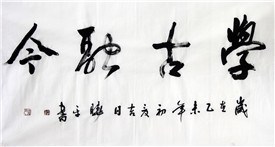 學古融今
歲在乙未年初夏吉日書